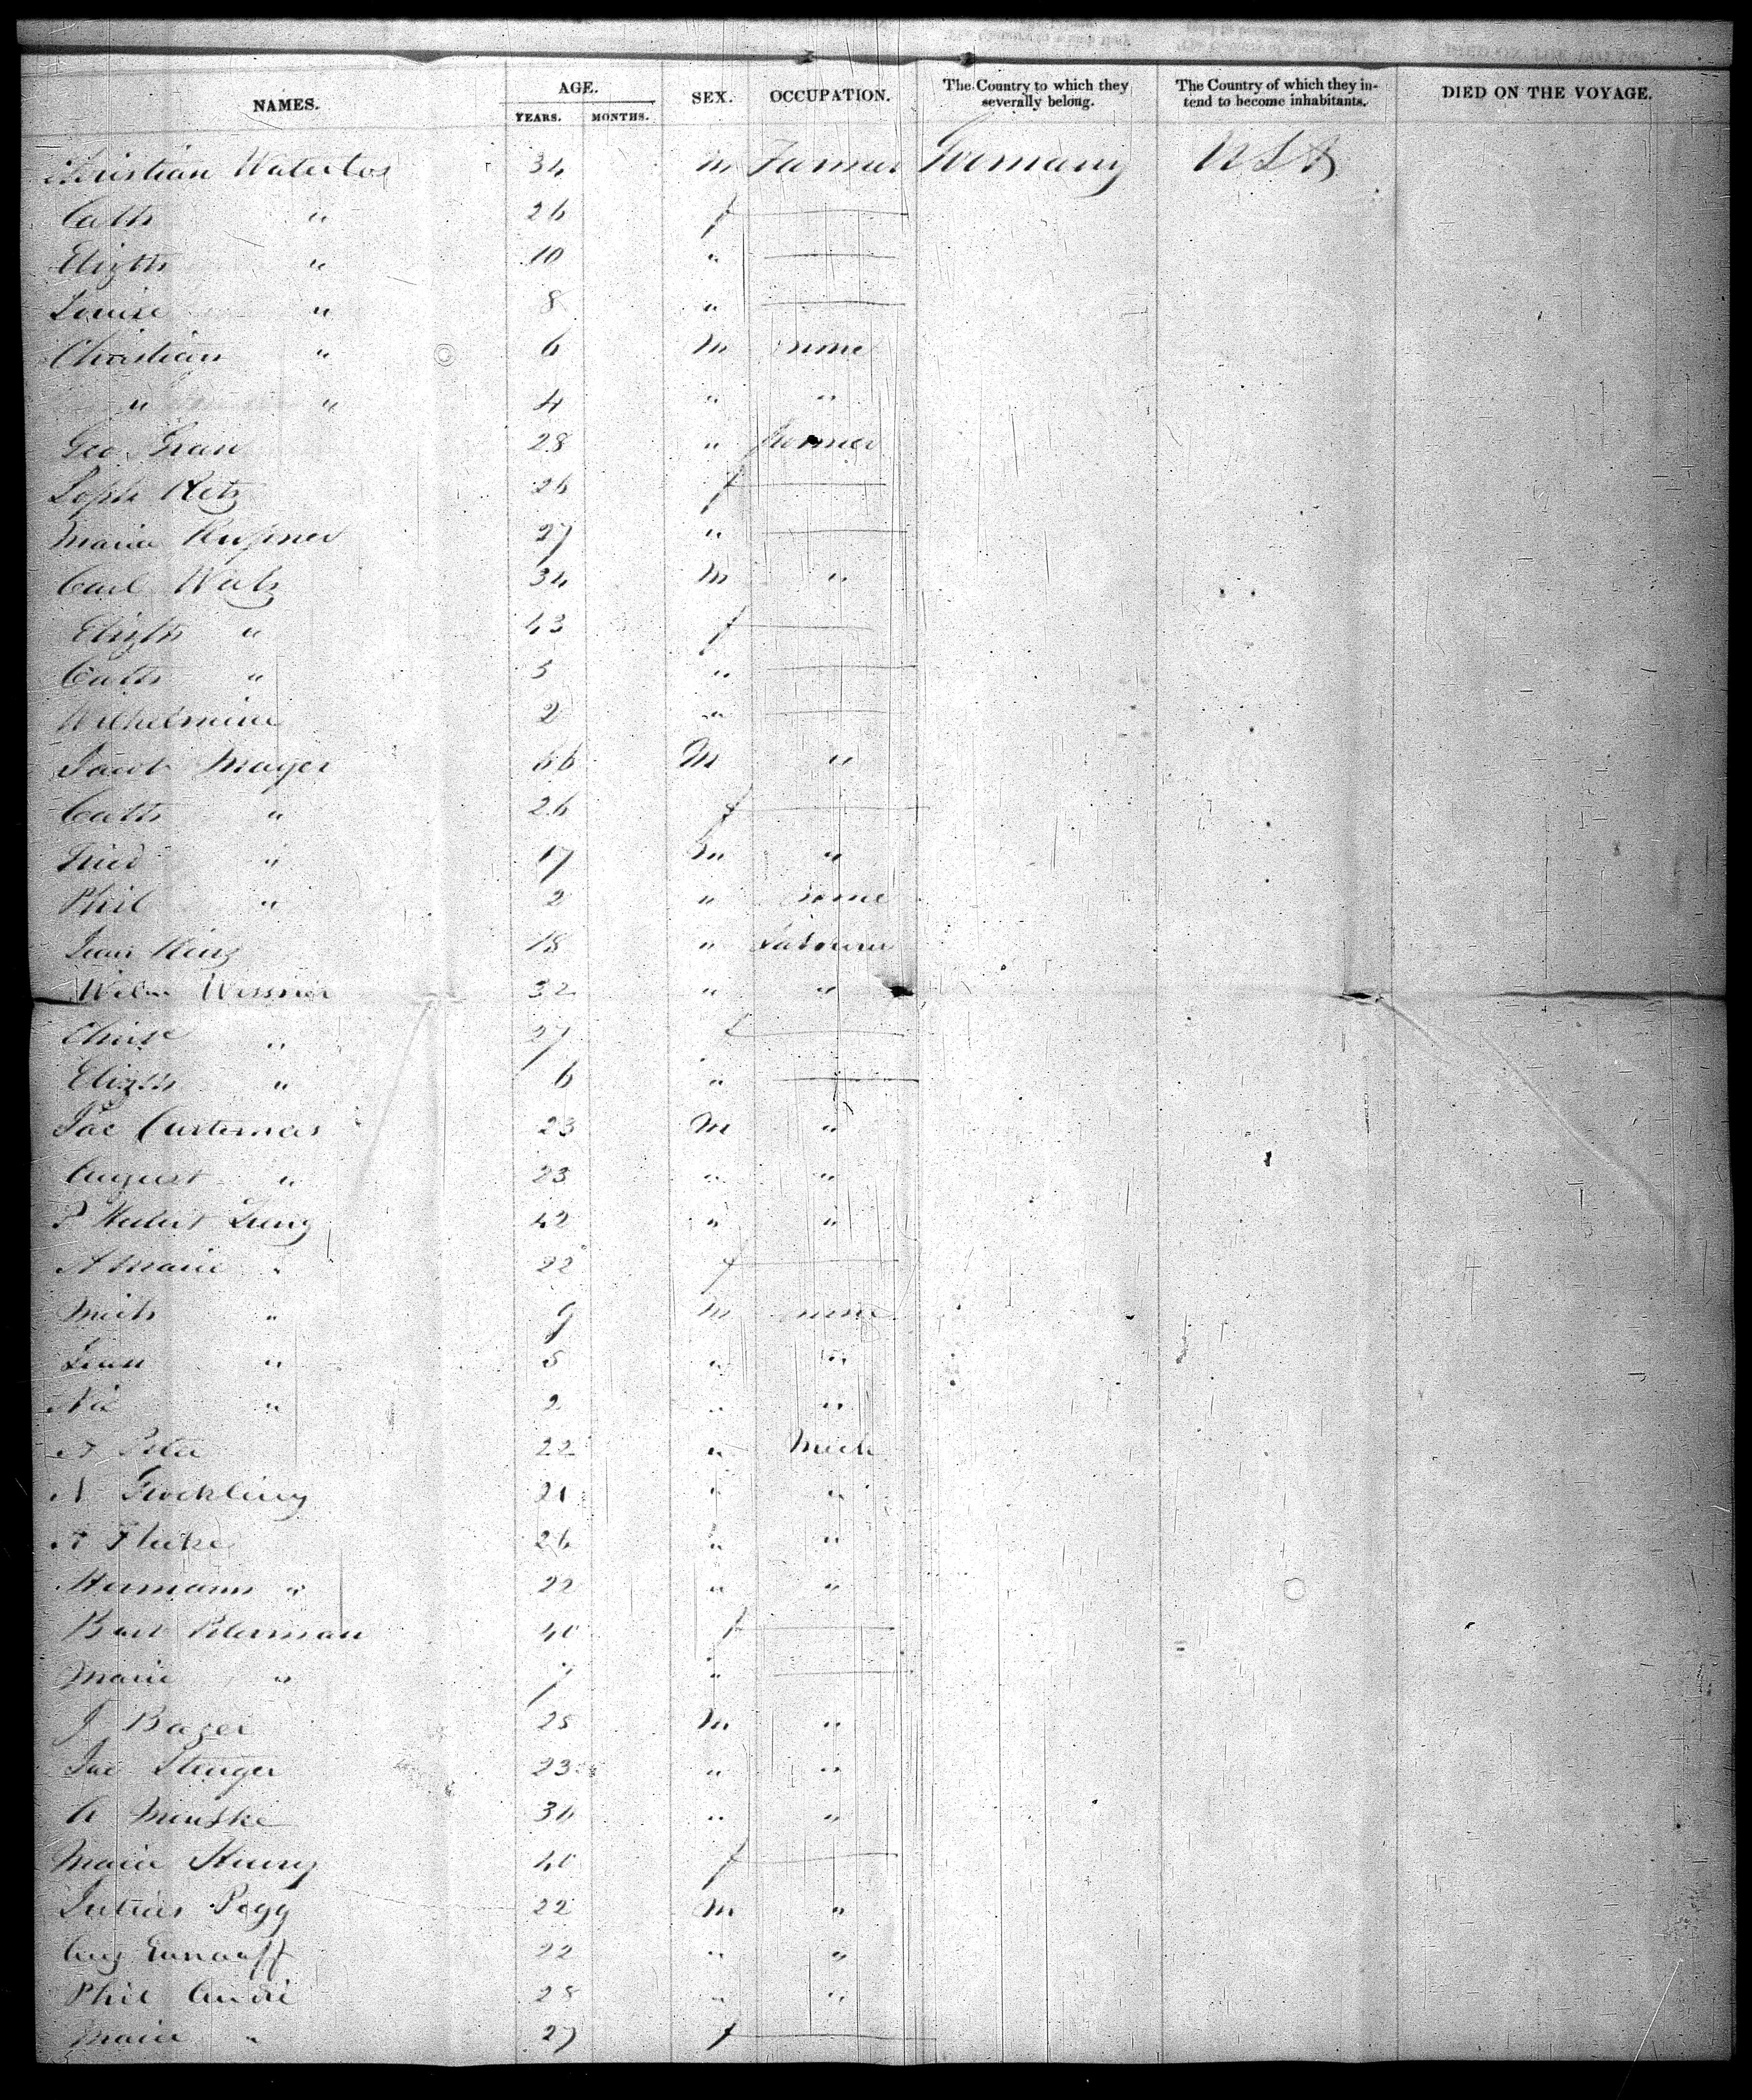 NAMES. AGE. YEARS. MONTHS. SEX. OCCUPATION. The Country to which they severally belong. The Country of which they intend to become inhabitants. DIED ON THE VOYAGE.
Christian Waterloo 34 m Farmer Germany USA
Cath " 26 f
Elizth " 10 "
Louise " 8 "
Christian " 6 m none
" " 4 " "
Geo 28 " farmer
Soph Retz 26 f
Maria 27 "
Carl 34 m "
Elizth " 43 f
Cath " 5 "
Wilhelmine 2 "
Jacob Mayer 66 m "
Cath " 26 f
Fried " 17 m "
Phil " 2 " none
18 " Labourer
Wilm Wessner 32 " "
Christ " 27 f
Elizth " 6 "
Jac 23 m "
August " 23 " "
42 " "
A Marie " 22 f
Mich " 9 m none
" 5 " "
Nic " 2 " "
Peter 22 " Mech
N 21 " "
26 " "
Hermann " 22 " "
Peterman 40 f
Marie " 7 "
J Bager 25 m "
Jac Stenger 23 " "
A Menske 36 " "
Maria Henry 40 f
Julius Pegg 22 m "
Aug 22 " "
Phil André 28 " "
Maria " 27 f